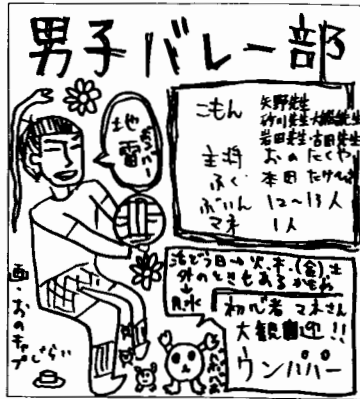 男子バレー部
こもん 矢野先生
砂川先生 大舘先生
岩田先生・吉田先生
主将 おの たくや
ふく 本田 たけ
ぶいん 12〜13人
マネ 1人
地雷
活どう日→火、木、(金)、土
外のときもあるかもね
月、水
初心者 マネさん
大歓迎!!
ウンパパー
画・おのキャプ
じらい